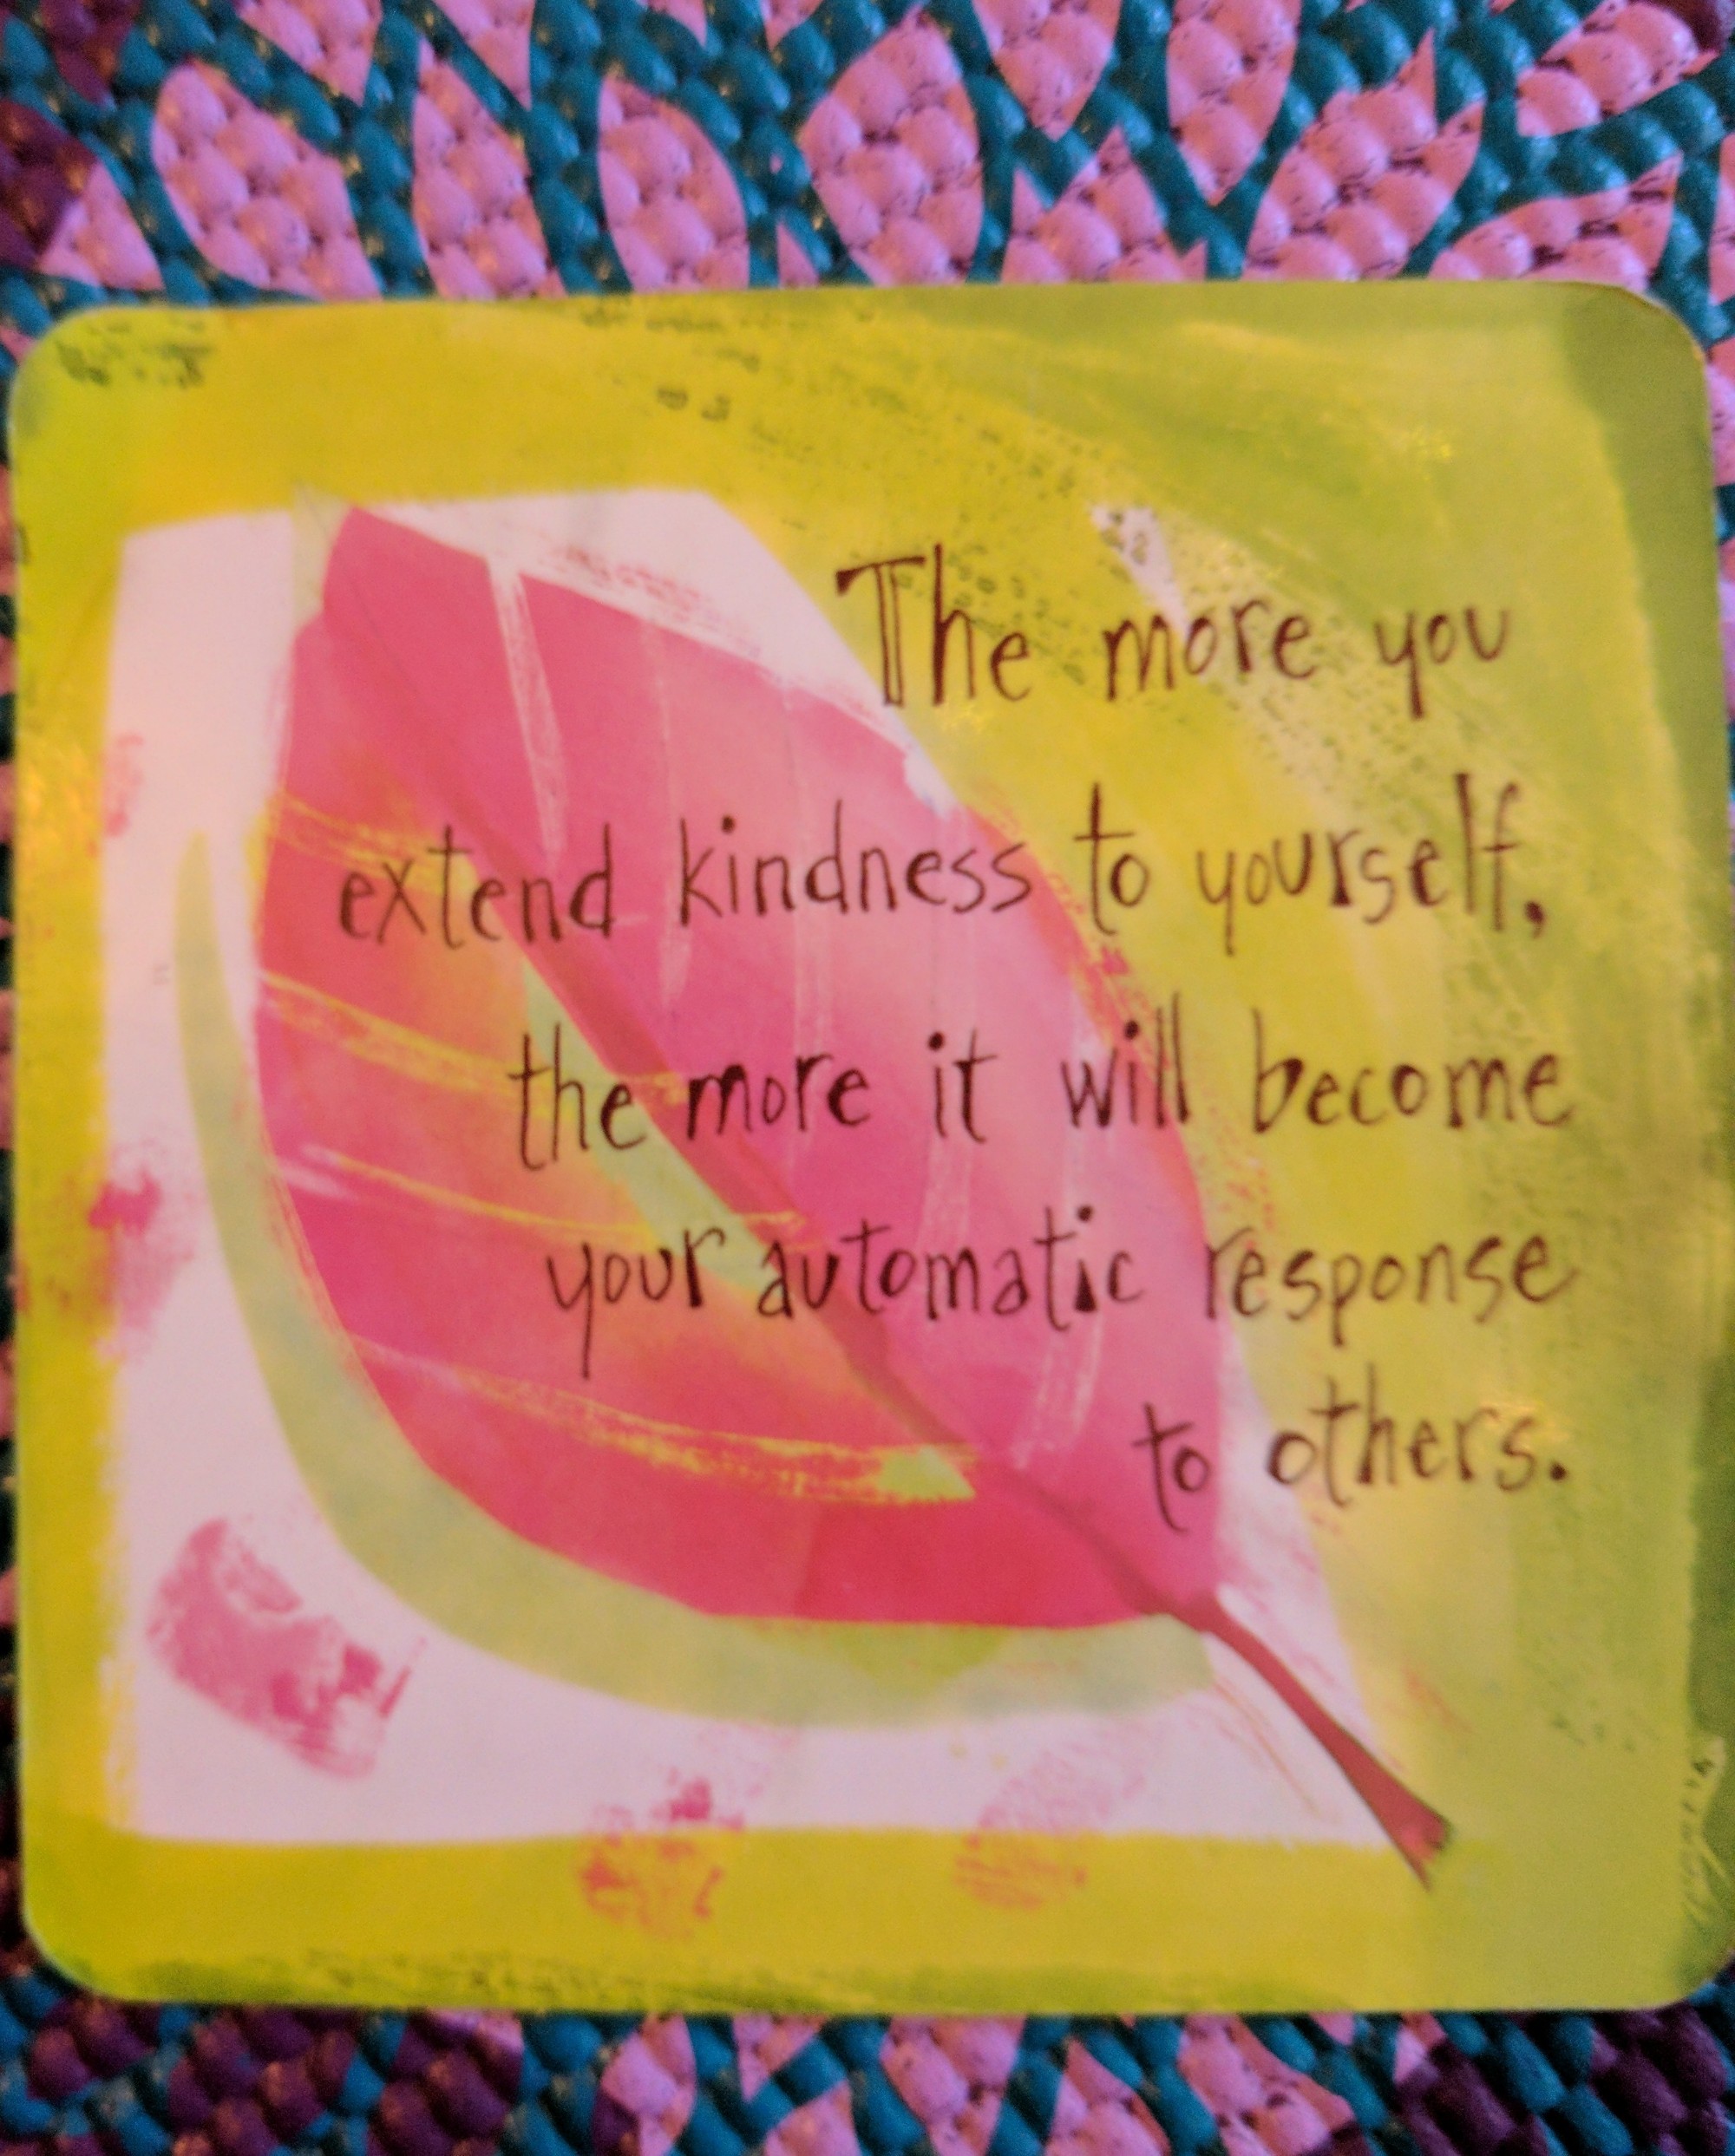 The more you
extend kindness to yourself,
the more it will become
your automatic response
to others.